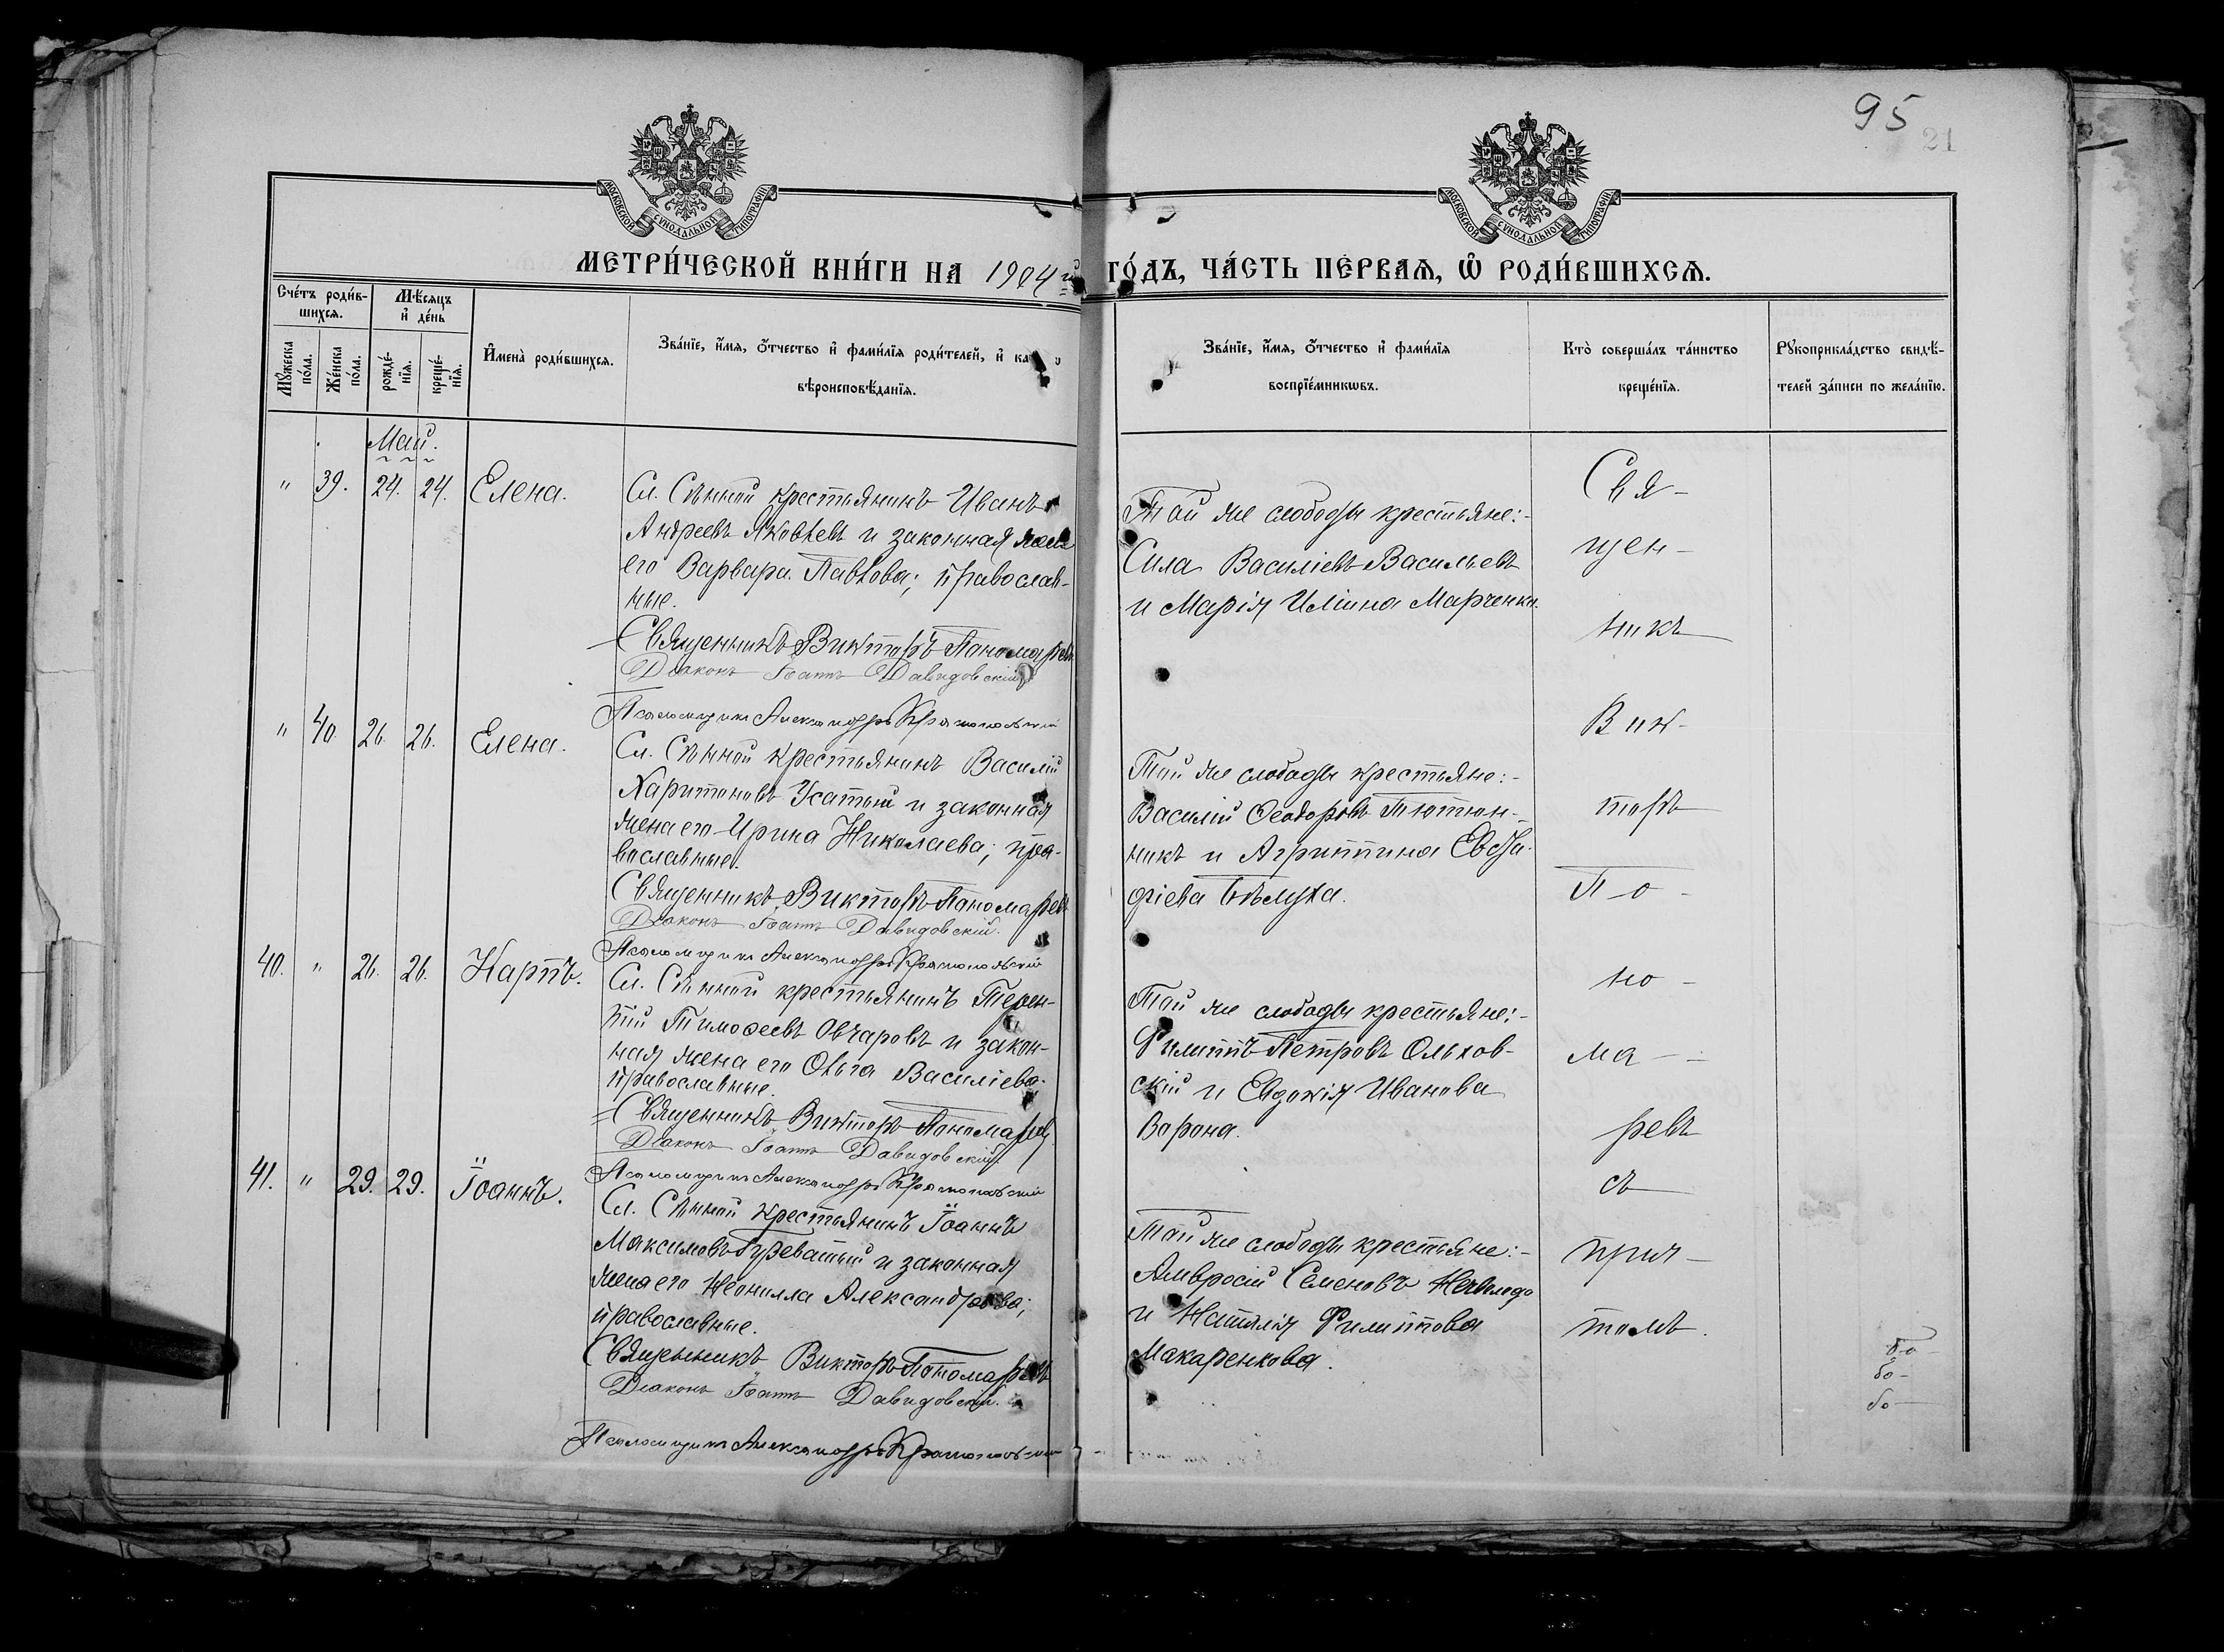 95
21
МОСКОВСКОЙ СѴНОДАЛЬНОЙ ТИПОГРАФІИ
МОСКОВСКОЙ СѴНОДАЛЬНОЙ ТИПОГРАФІИ
МЕТРИ́ЧЕСКОЙ КНИ́ГИ НА 1904 й
ГО́ДЪ, ЧА́СТЬ ПЕ́РВАѦ, Ѡ РОДИ́ВШИХСѦ.
Сче́тъ роди́в-
шихсѧ.
Мꙋ́жеска по́ла.
Же́нска по́ла.
Мѣ́сѧцъ
и҆ де́нь
рожде́-
нїѧ.
креще́-
нїѧ.
И҆мена̀ роди́вшихсѧ.
Зва́нїе, и҆́мѧ, ѻ҆́тчество и҆ фами́лїѧ роди́телей, и҆
вѣроисповѣ́данїѧ.
Зва́нїе, и҆́мѧ, ѻ҆́тчество и҆ фами́лїѧ
воспрїе́мникѡвъ.
Кто̀ соверша́лъ та́инство
креще́нїѧ.
Рꙋкоприкла́дство свидѣ́-
телей за́писи по жела́нїю.
Май.
" 39. 24. 24. Елена.
Сл. Сѣнной крестьянинъ Иванъ
Андреевъ Яковлевъ и законная жена
его Варвара Павлова; православ-
ные.
Священникъ Викторъ Пономаревъ
Діаконъ Іоаннъ Давидовскій
Псаломщикъ Александръ
Той же слободы крестьяне:-
Сила Василіевъ Васильевъ
и Марія Иліина Марченко.
" 40. 26. 26. Елена.
Сл. Сѣнной крестьянинъ Василій
Харитоновъ Усатый и законная
жена его Ирина Николаева; пра-
вославные.
Священникъ Викторъ Пономаревъ
Діаконъ Іоаннъ Давидовскій.
Псаломщикъ Александръ
Той же слободы крестьяне:-
Василій Ѳеодоровъ Тютюн-
никъ и Агриппина Евста-
фіева Бѣлуха.
40. " 26. 26. Карпъ.
Сл. Сѣнной крестьянинъ Терен-
тій Тимоѳеевъ Овчаровъ и закон-
ная жена его Ольга Василіева;
православные.
Священникъ Викторъ Пономаревъ
Діаконъ Іоаннъ Давидовскій
Псаломщикъ Александръ
Той же слободы крестьяне:-
Филиппъ Петровъ Ольхов-
скій и Евдокія Иванова
Ворона.
41. " 29. 29. Іоаннъ.
Сл. Сѣнной крестьянинъ Іоаннъ
Максимовъ и законная
жена его Неонилла Александрова;
православные.
Священникъ Викторъ Пономаревъ
Діаконъ Іоаннъ Давидовскій.
Псаломщикъ Александръ
Той же слободы крестьяне:-
Амвросій Семеновъ
и Наталія Филиппова
Макаренкова.
Свя-
щен-
никъ
Вик-
торъ
По-
но-
ма-
ревъ
съ
прич-
томъ.